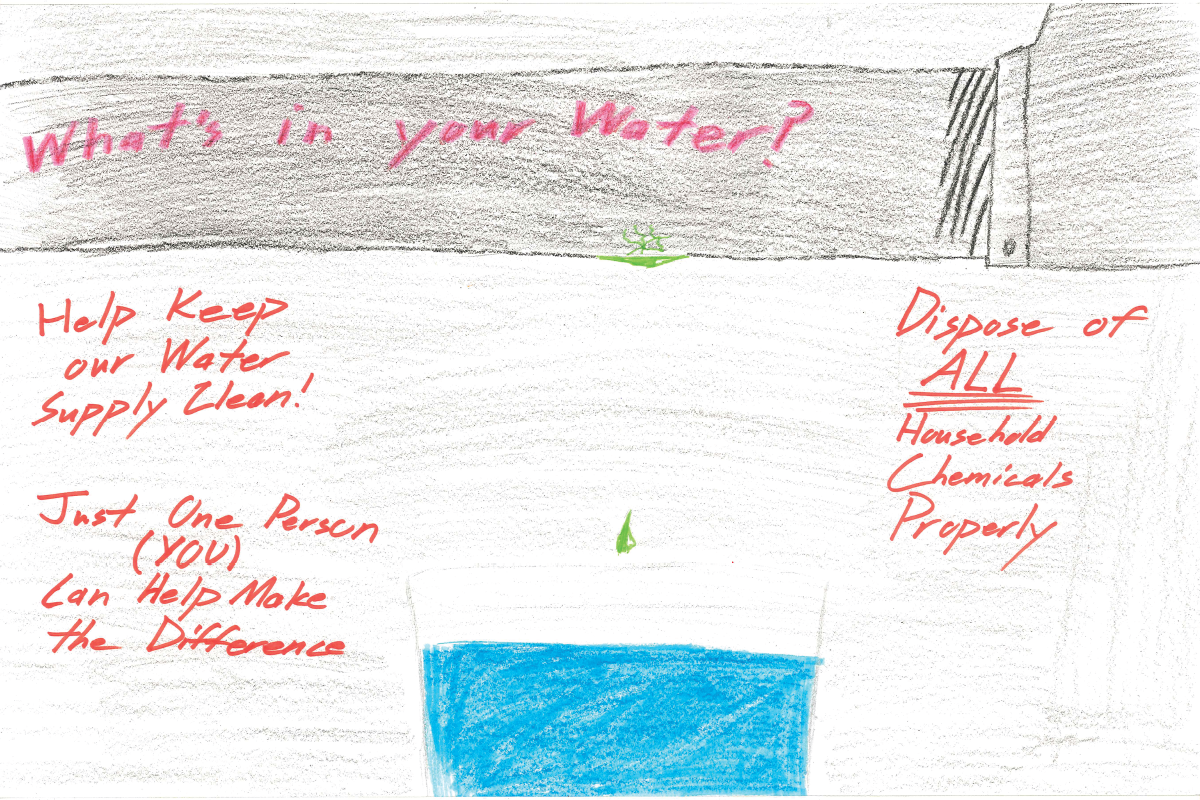 What's in your Water?
Help Keep
our Water
Supply Clean!
Just One Person
(YOU)
Can Help Make
the Difference
Dispose of
ALL
Household
Chemicals
Properly